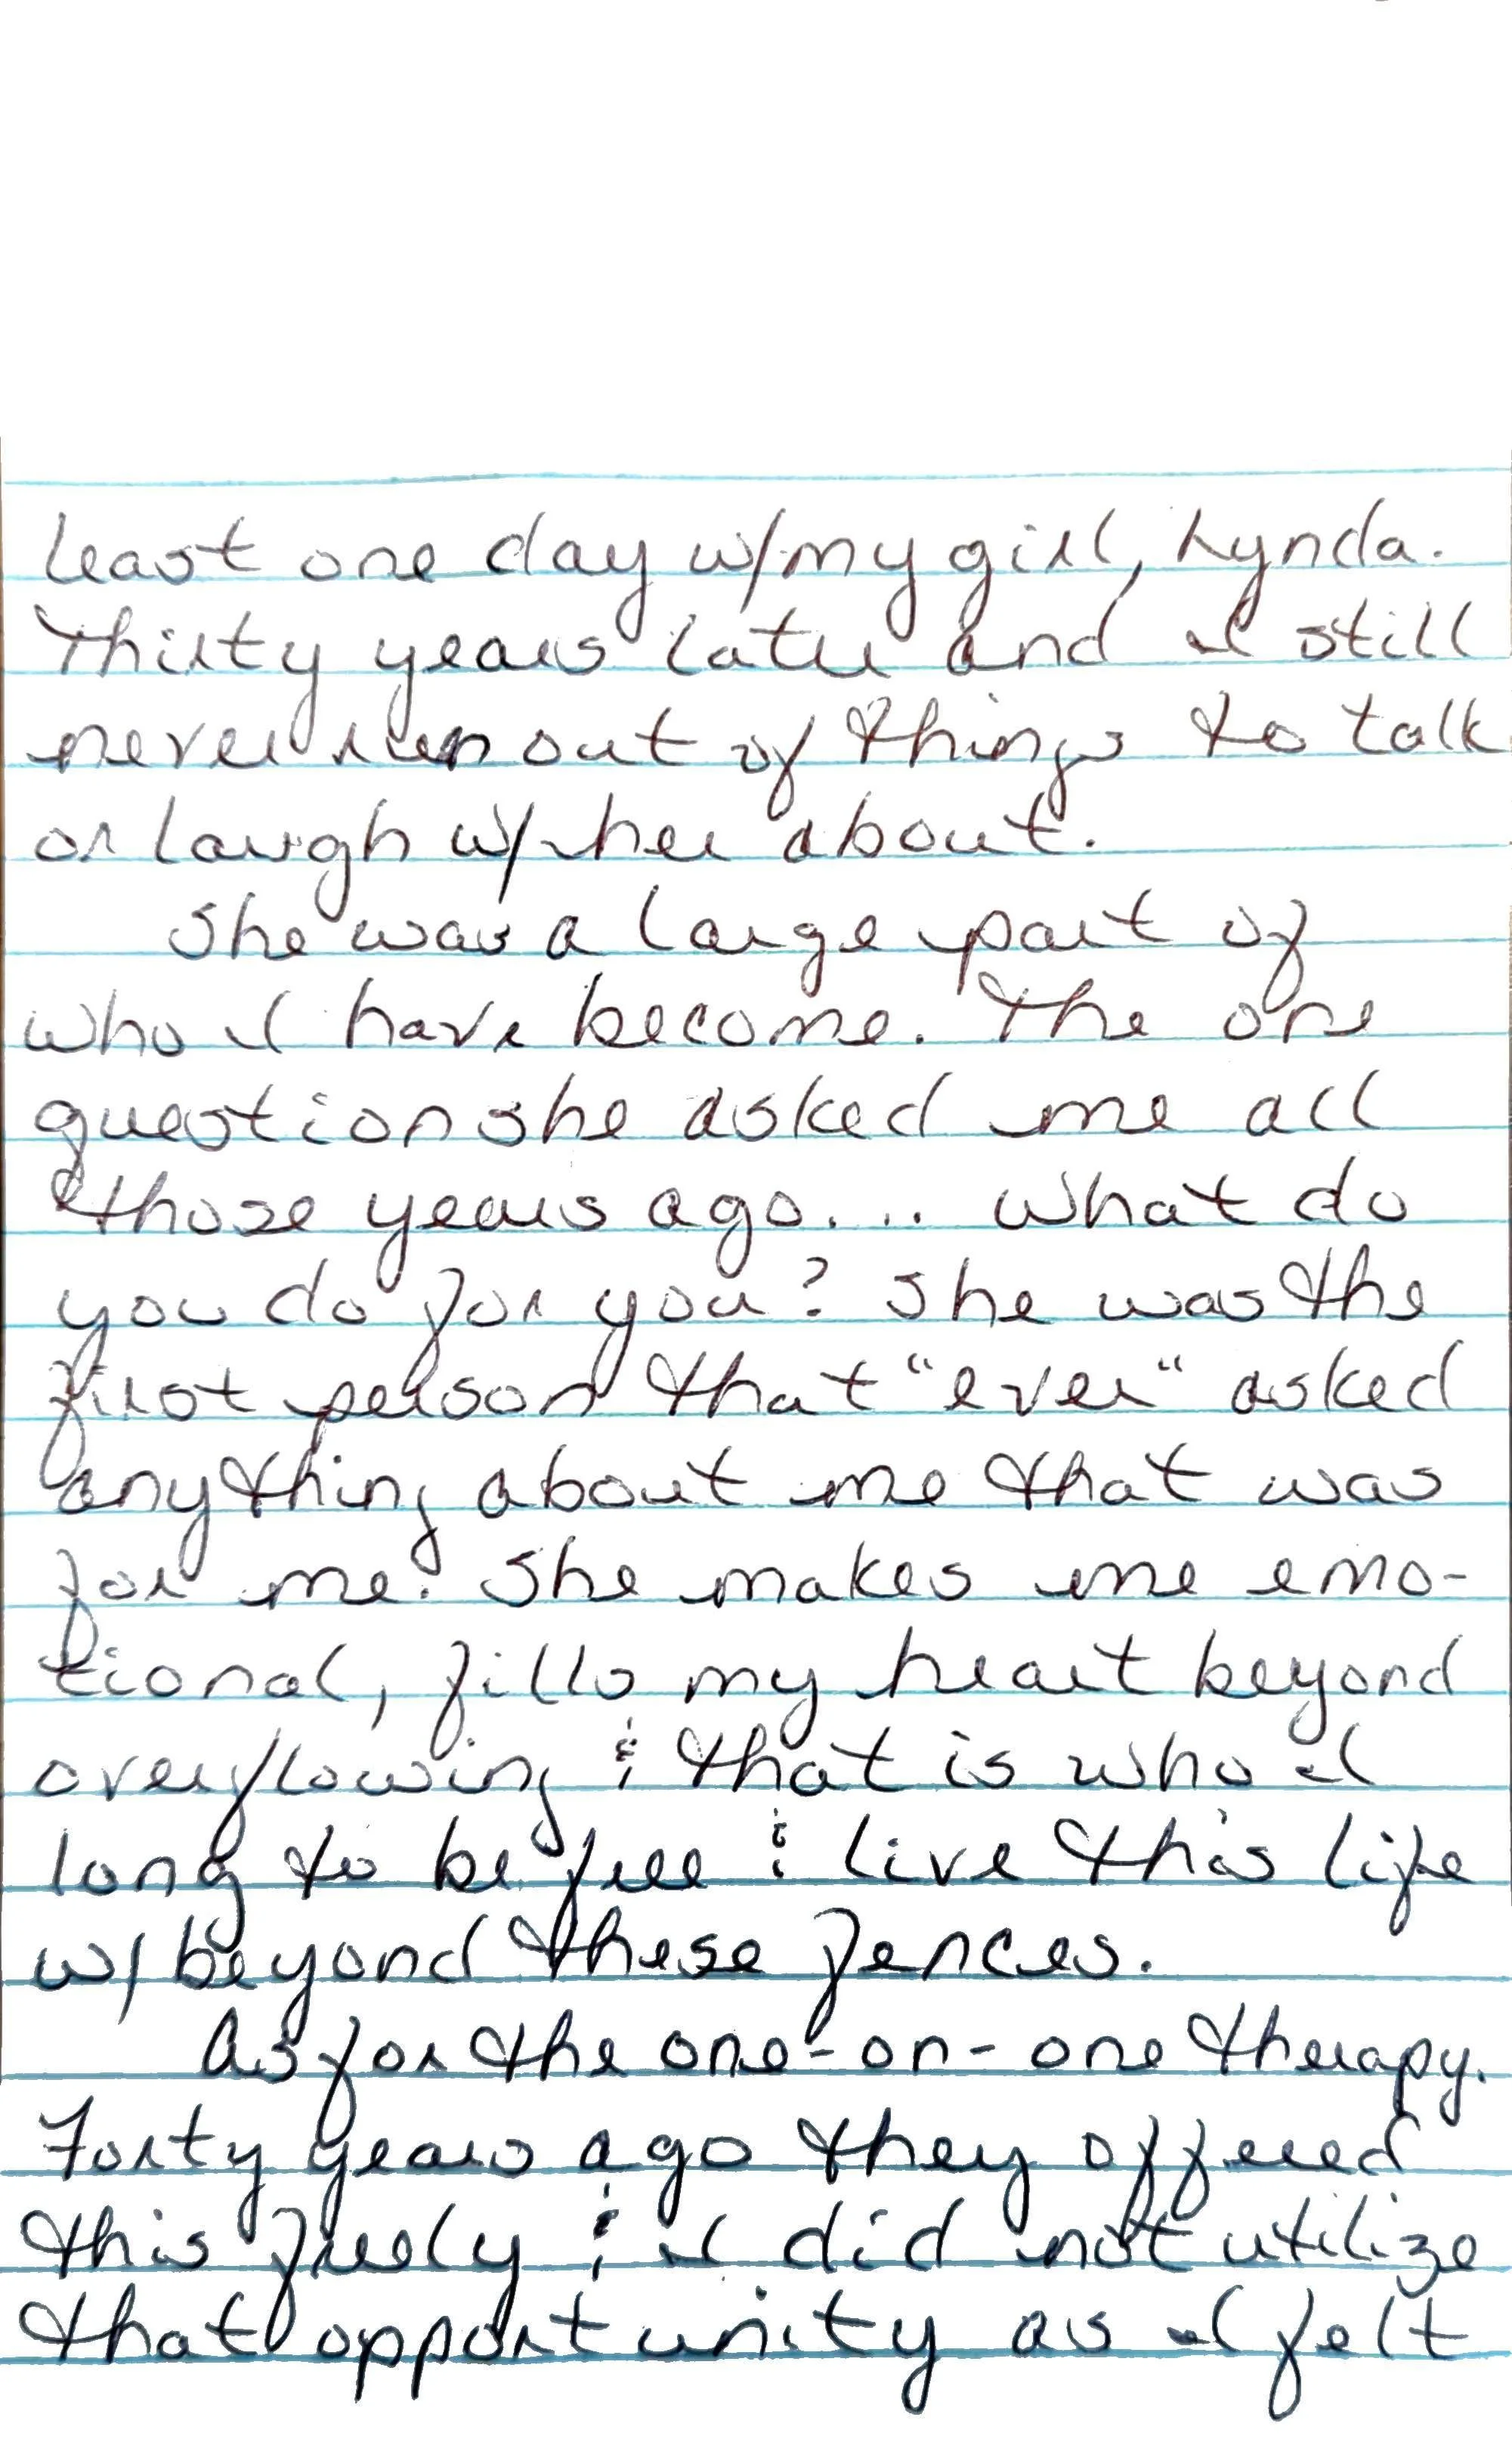 least one day w/my girl, Lynda.
Thirty years later and I still
never run out of things to talk
or laugh w/her about.
She was a large part of
who I have become. The one
question she asked me all
those years ago... what do
you do for you? She was the
first person that "ever" asked
anything about me that was
for me. She makes me emo-
tional, fills my heart beyond
overflowing & that is who I
long to be free & live this life
w/beyond these fences.
As for the one-on-one therapy.
Forty years ago they offered
this freely & I did not utilize
that opportunity as I felt